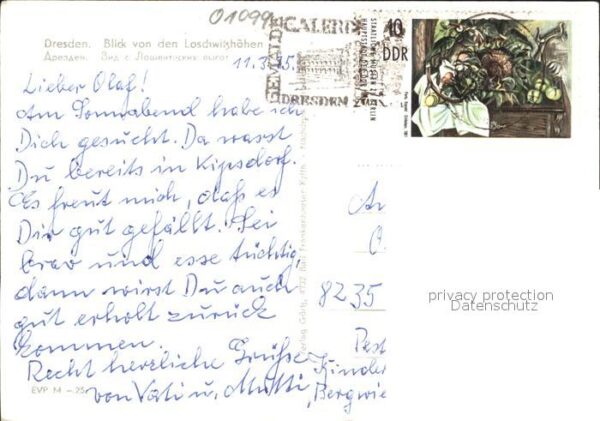 01099
Dresden. Blick von den Loschwitzhöhen
Дрезден. Вид с Лошвитских высот
11.3.
GEMÄLDE GALERIE DRESDEN
10
DDR
STAATLICHE MUSEEN ZU BERLIN
Lieber Olaf!
Am Sonnabend habe ich
Dich gesucht. Da warst
Du bereits in Kipsdorf.
Es freut mich, daß es
Dir gut gefällt. Sei
brav und esse tüchtig,
dann wirst Du auch
gut erholt zurück
kommen.
Recht herzliche Grüße
von Vati u. Mutti
EVP M -,25
An
O
8235
Pest
Kinder
"Bergwie
privacy protection
Datenschutz